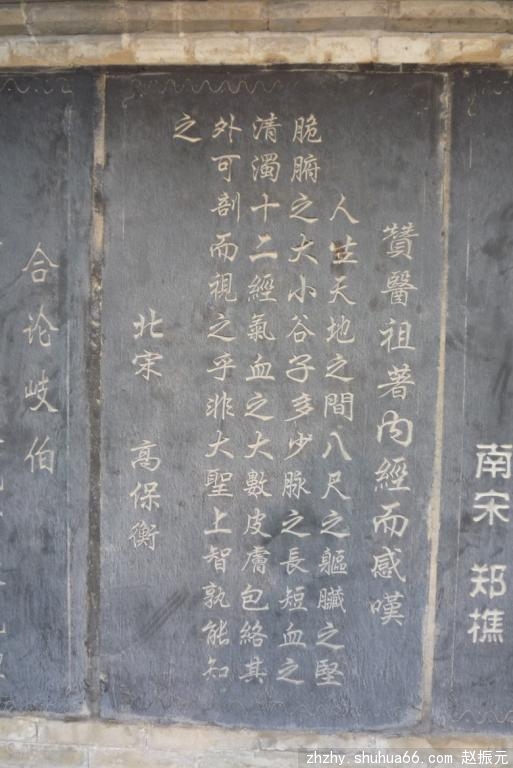 南宋 郑樵
贊醫祖著内經而感嘆
人生天地之間八尺之軀臟之堅
脆腑之大小谷子多少脉之長短血之
清濁十二經氣血之大數皮膚包絡其
外可剖而視之乎非大聖上智孰能知
之
北宋 高保衡
合论岐伯
zhzhy.shuhua66.com 赵振元